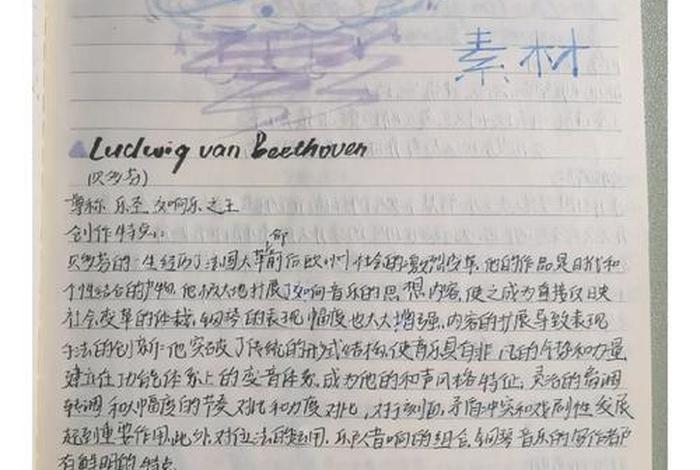 素材
Ludwig van Beethoven
(贝多芬)
尊称 乐圣 交响乐之王
创作特点:
贝多芬的一生经历了法国大革命前后欧州社会的激烈变革,他的作品是时代和
个性结合的产物,他极大地扩展了交响音乐的思想内容,使之成为直接反映
社会变革的体裁,钢琴的表现幅度也大大增强,内容的扩展导致表现
手法的创新:他突破了传统的形式结构,使音乐具有非凡的气势和力量
建立在功能体系上的变音体系,成为他的和声风格特征,灵活的离调
转调和大幅度的节奏对比和力度对比,对于刻画,矛盾冲突和戏剧性发展
起到重要作用,此外,对位法的运用,乐队音响的组合,钢琴音乐的写作者卩
有鲜明的特点